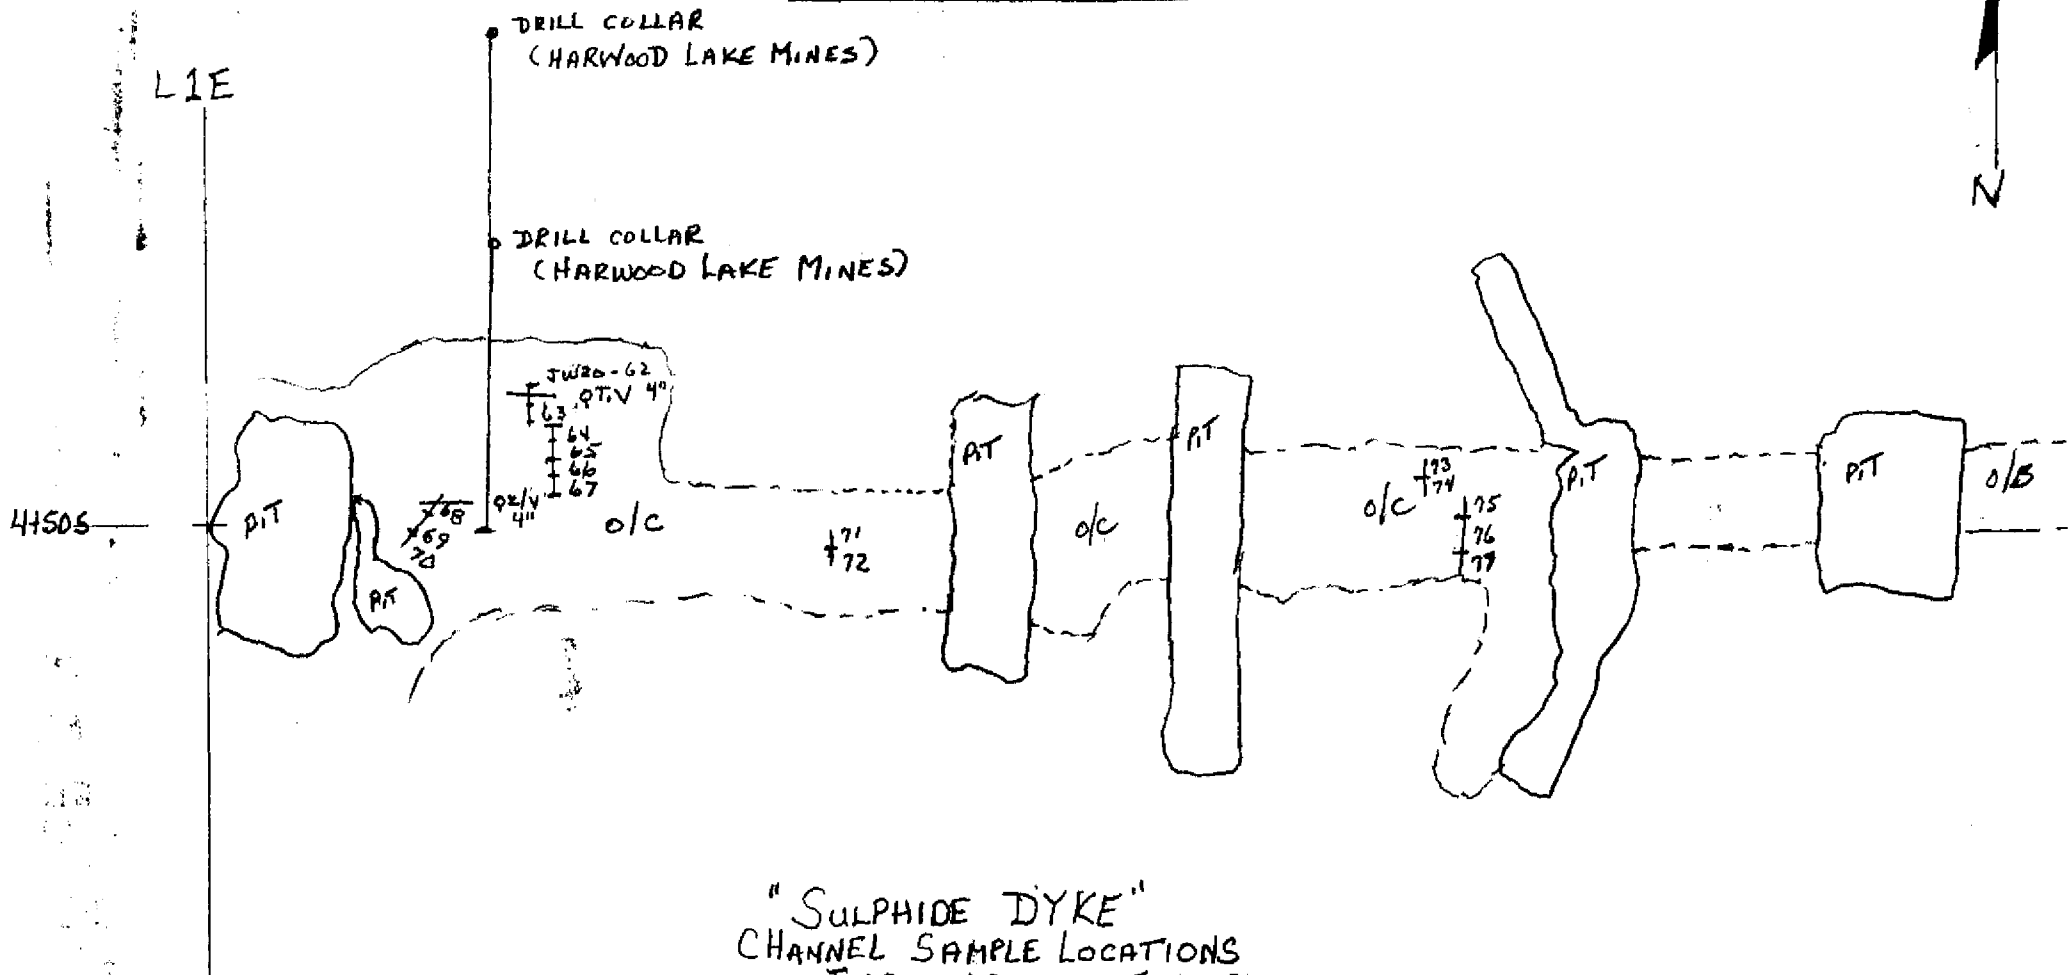 DRILL COLLAR
(HARWOOD LAKE MINES)
L1E
N
DRILL COLLAR
(HARWOOD LAKE MINES)
JW20-62
QTZV 4"
63
64
65
66
67
68
69
70
QZ/V
4"
4+50S
PIT
PIT
O/C
71
72
PIT
O/C
PIT
O/C
73
74
75
76
77
PIT
PIT
O/B
"SULPHIDE DYKE"
CHANNEL SAMPLE LOCATIONS